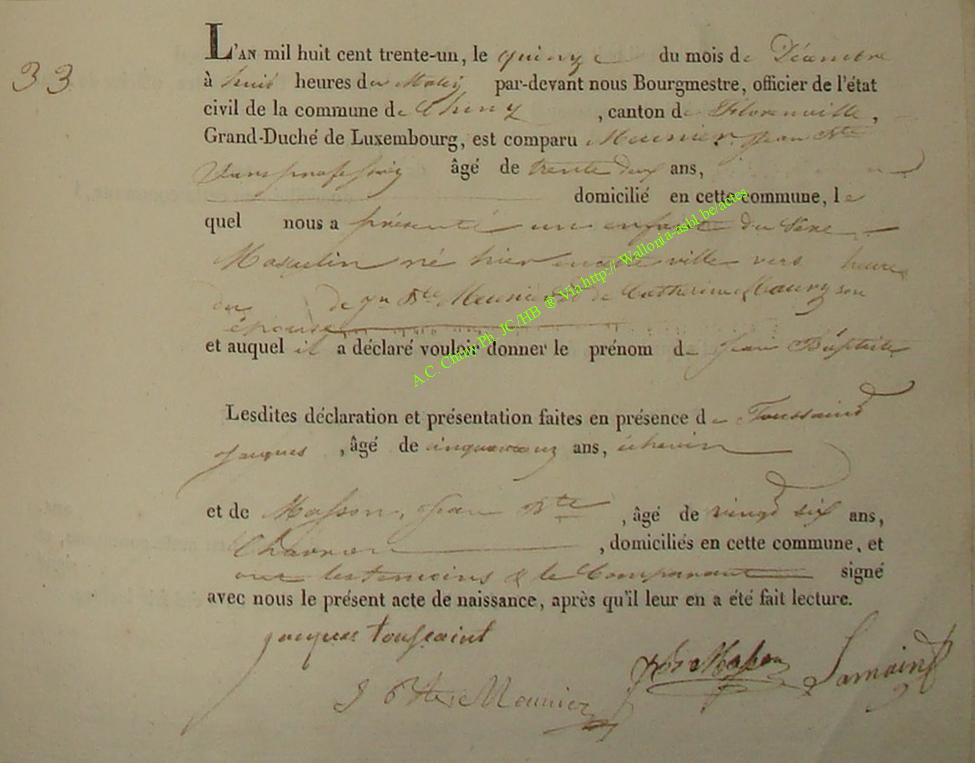 33
L'AN mil huit cent trente-un, le quinze du mois de Décembre
à huit heures du Matin par-devant nous Bourgmestre, officier de l'état
civil de la commune de Chiny, canton de Florenville,
Grand-Duché de Luxembourg, est comparu Meunier Jean Bte
Sans profession âgé de trente deux ans,
domicilié en cette commune, le
quel nous a présenté un enfant du Sexe
Masculin né hier en cette ville vers heures
du de Jn Bte Meunier et de Catherine Maury son
épouse
et auquel il a déclaré vouloir donner le prénom de Jean Baptiste
Lesdites déclaration et présentation faites en présence de Toussaint
Jacques, âgé de ans, échevin
et de Masson, Jean Bte, âgé de vingt six ans,
Charron, domiciliés en cette commune, et
ont les temoins & le Comparant signé
avec nous le présent acte de naissance, après qu'il leur en a été fait lecture.
jacques toussaint
J Bte Meunier
J Bte Masson
A.C. Chiny Ph. JC/HB @ Via http:// Wallonia-asbl.be/actes